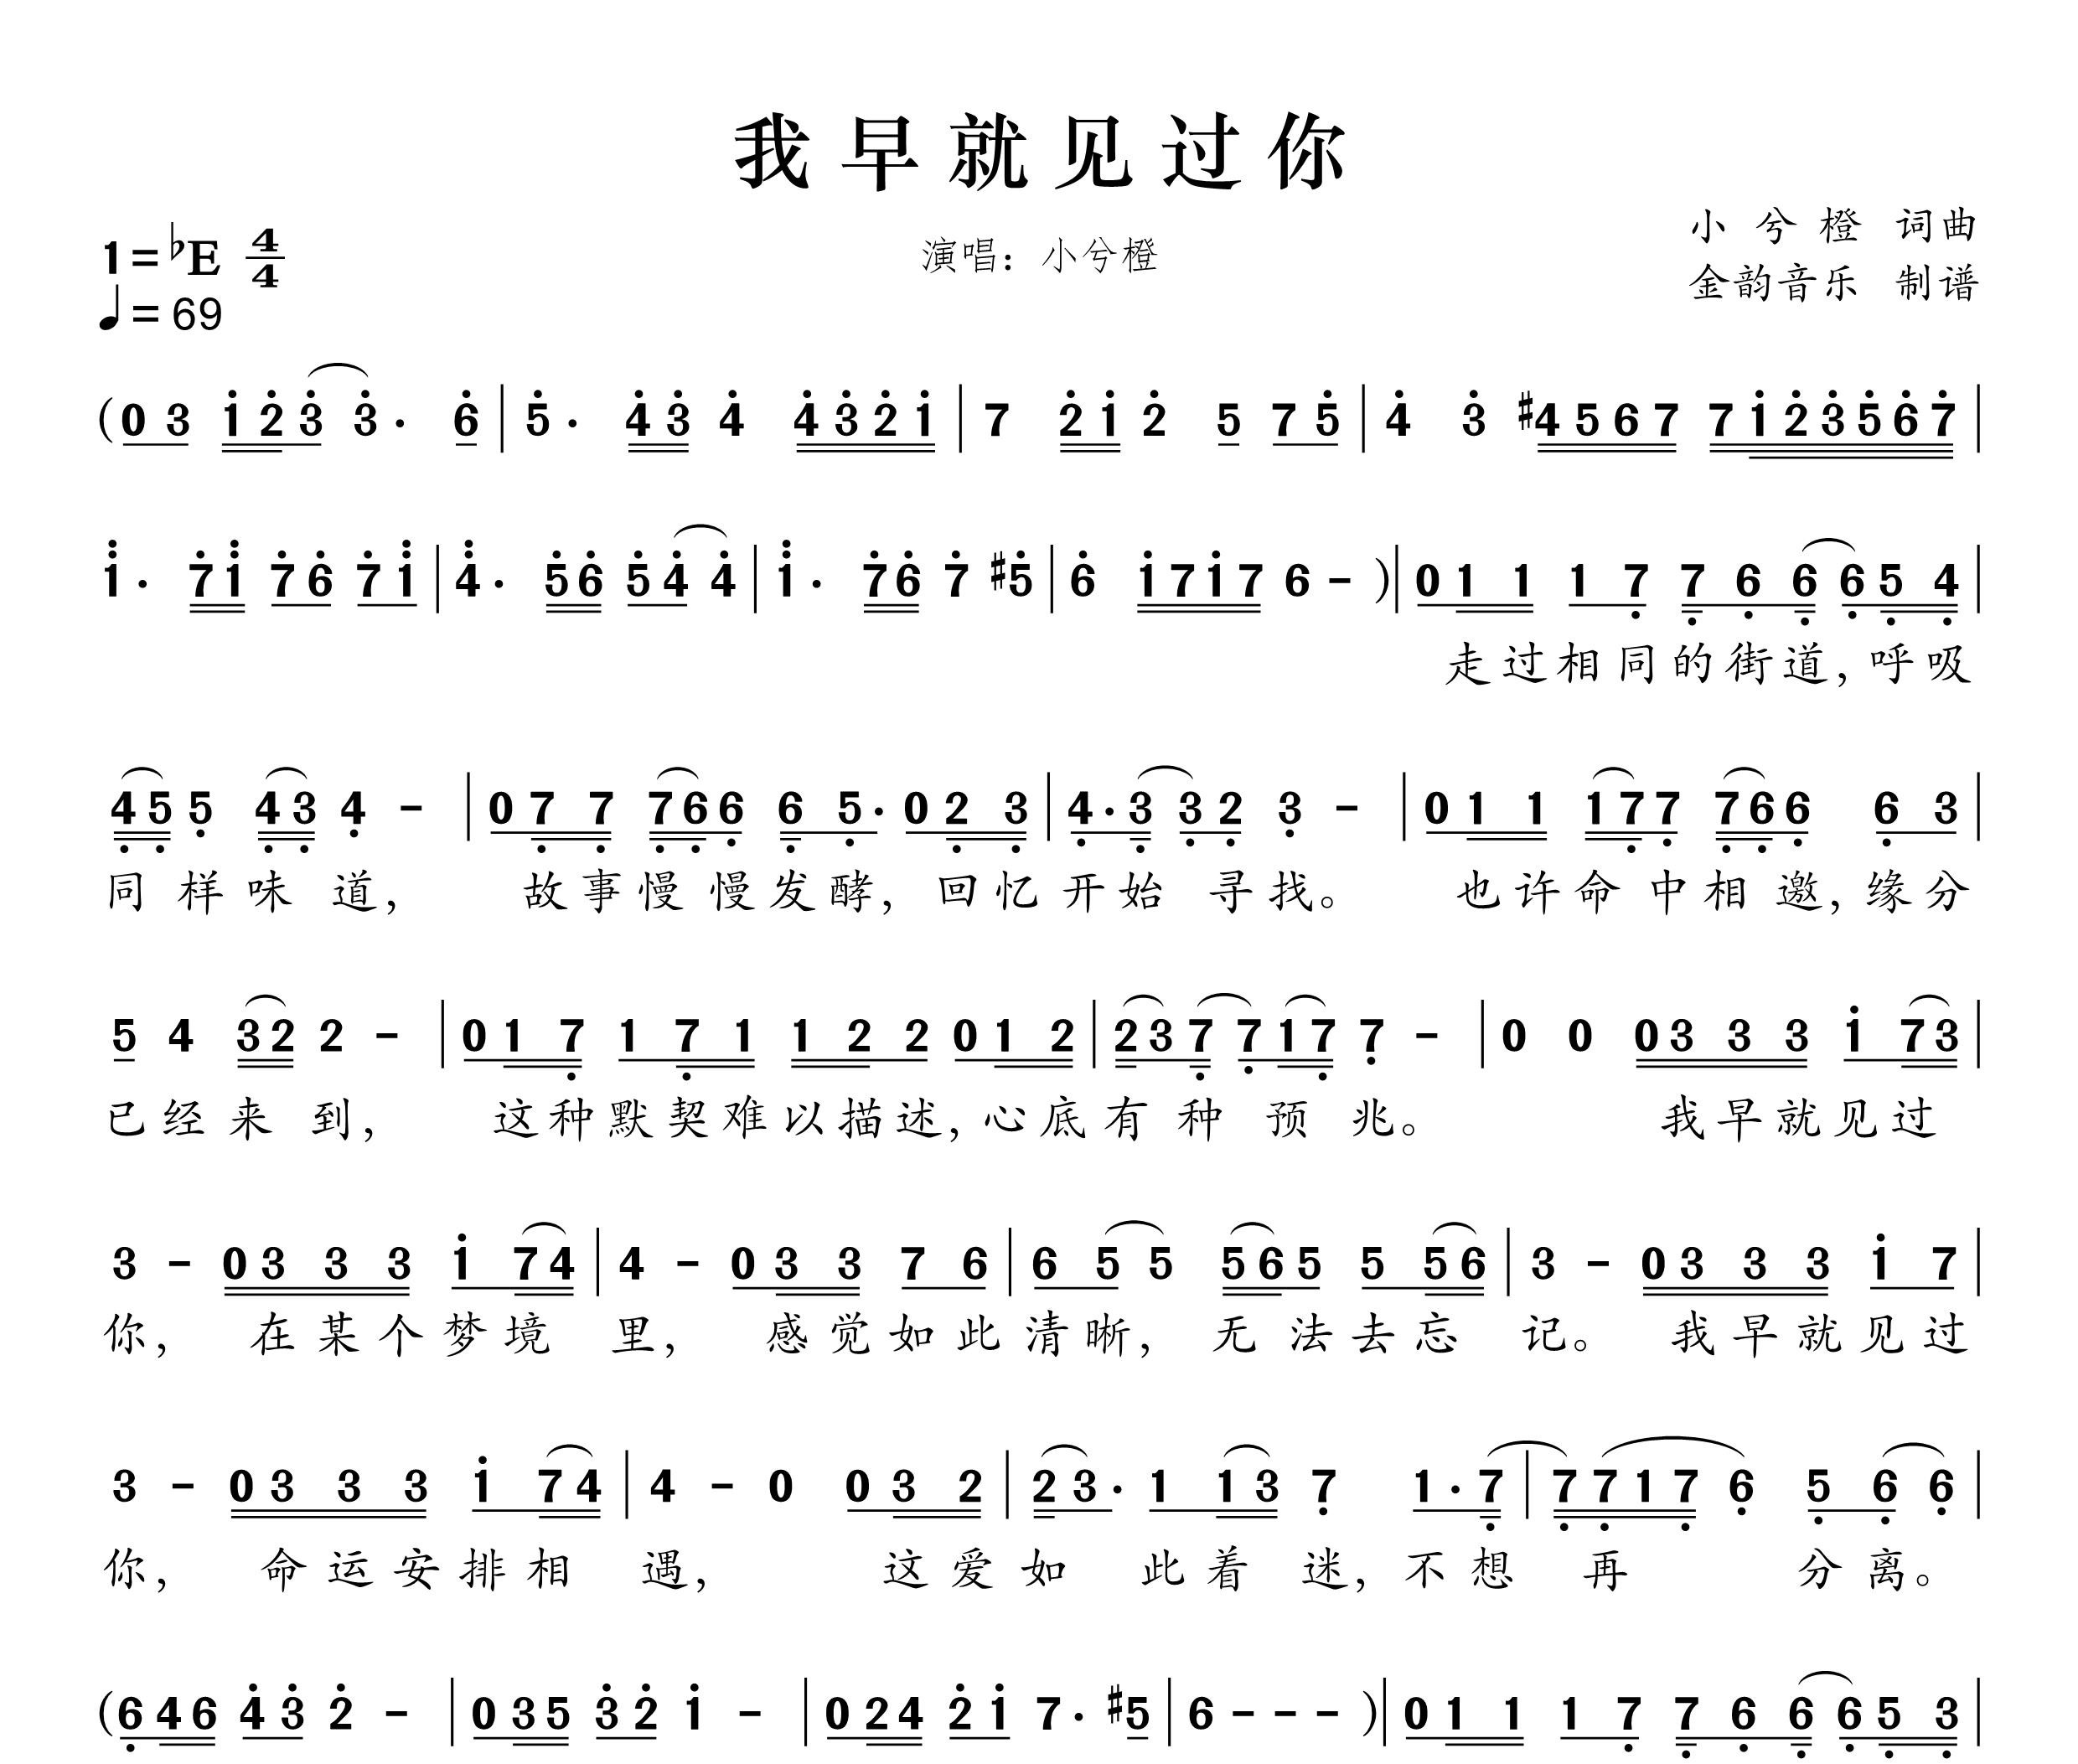 我早就见过你
1=♭E 4/4
♩=69
演唱：小兮橙
小兮橙 词曲
金韵音乐 制谱
(0 3 1̇ 2̇ 3̇ 3̇· 6̇ | 5̇· 4̇ 3̇ 4̇ 4̇ 3̇ 2̇ 1̇ | 7 2̇ 1̇ 2̇ 5 7 5̇ | 4̇ 3̇ #4 5 6 7 7 1̇ 2̇ 3̇ 5̇ 6̇ 7̇ |
1̈· 7̇ 1̈ 7̇ 6̇ 7̇ 1̈ | 4̈· 5̇ 6̇ 5̇ 4̇ 4̇ | 1̈· 7̇ 6̇ 7̇ #5̇ | 6̇ 1̇ 7 1̇ 7 6 - )| 0 1 1 1 7̣ 7̣ 6̣ 6̣ 6̣ 5̣ 4̣ |
走过相同的街道，呼吸
4̣ 5̣ 5̣ 4̣ 3̣ 4̣ - | 0 7̣ 7̣ 7̣ 6̣ 6̣ 6̣ 5̣· 0 2̣ 3̣ | 4̣· 3̣ 3̣ 2̣ 3̣ - | 0 1 1 1 7̣ 7̣ 7̣ 6̣ 6̣ 6̣ 3 |
同样味道， 故事慢慢发酵，回忆开始寻找。 也许命中相邀，缘分
5 4 3 2 2 - | 0 1 7̣ 1 7̣ 1 1 2 2 0 1 2 | 2 3 7̣ 7̣ 1 7̣ 7̣ - | 0 0 0 3 3 3 1̇ 7 3 |
已经来到， 这种默契难以描述，心底有种预兆。 我早就见过
3 - 0 3 3 3 1̇ 7 4 | 4 - 0 3 3 7 6 | 6 5 5 5 6 5 5 5 6 | 3 - 0 3 3 3 1̇ 7 |
你， 在某个梦境里， 感觉如此清晰， 无法去忘记。 我早就见过
3 - 0 3 3 3 1̇ 7 4 | 4 - 0 0 3 2 | 2 3· 1 1 3 7̣ 1· 7̣ | 7̣ 7̣ 1 7̣ 6̣ 5̣ 6̣ 6̣ |
你， 命运安排相遇， 这爱如此着迷，不想再分离。
(6̣ 4 6 4̇ 3̇ 2̇ - | 0 3 5 3̇ 2̇ 1̇ - | 0 2 4 2̇ 1̇ 7· #5 | 6 - - - )| 0 1 1 1 7̣ 7̣ 6̣ 6̣ 6̣ 5̣ 3̣ |